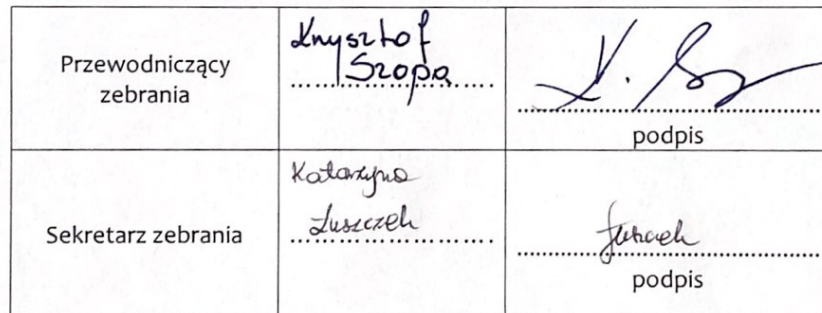 Przewodniczący
zebrania
Krysztof
Szopa
K. Sz
podpis
Sekretarz zebrania
Katarzyna
Łuszczek
Łuszczek
podpis